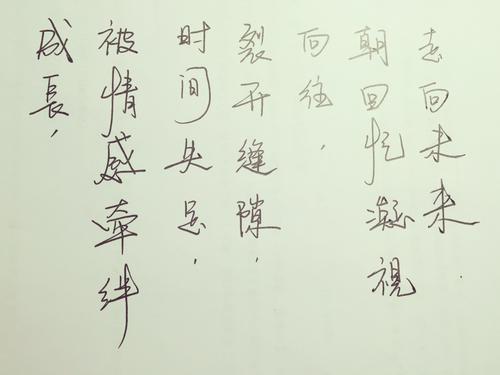 成長，
被情感牽绊
时间失足，
裂开缝隙，
向往，
朝回忆凝視
走向未来.